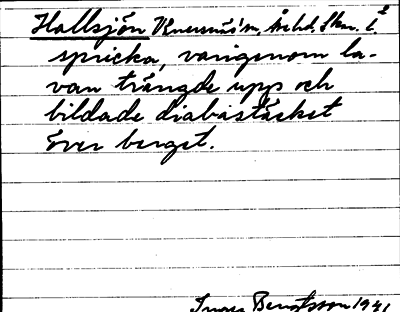 Hallsjön Vänersnäs sn, Åsebd. Skar. l.
spricka, varigenom la-
van trängde upp och
bildade diabastäcket
över berget.
Inger Bengtsson 1941